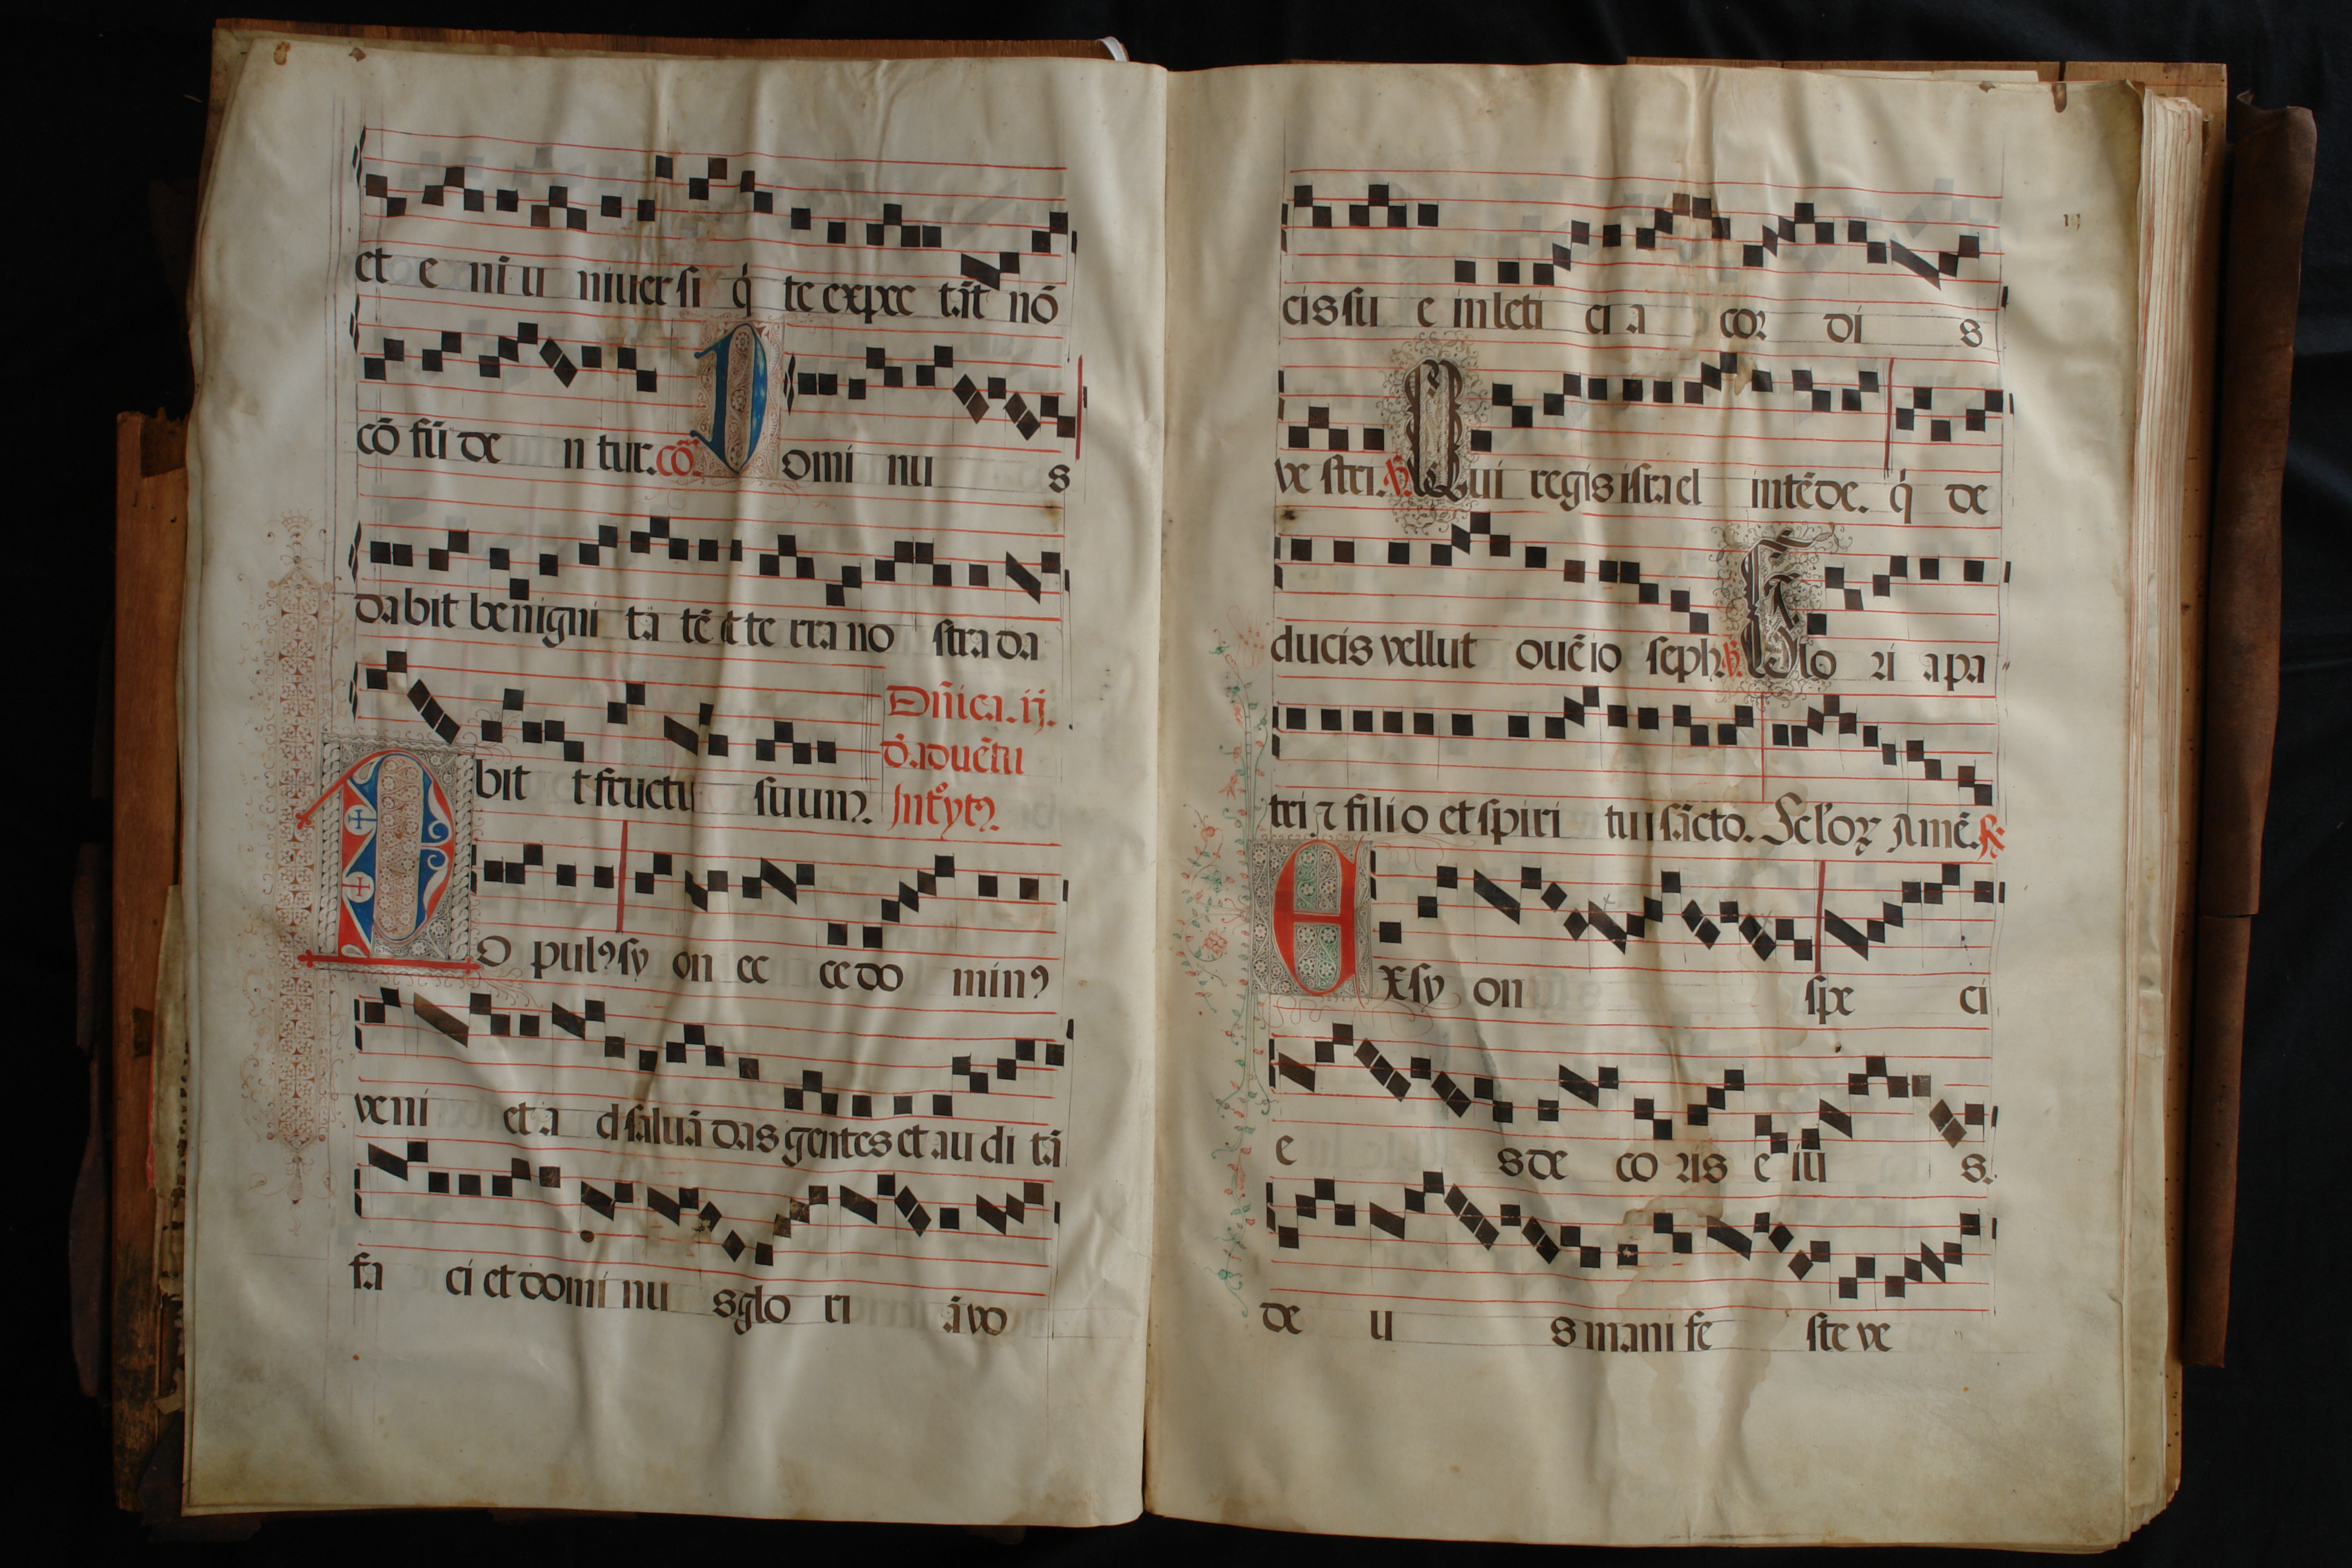 et e ni u niuer si q̇ te expec tāt nō
cō fū de n tur. cō. Domi nu s
dabit benigni ta tē et te rra no stra da
bit t fructū suum.
Dn̄ica. ij.
d̄. aduētu
Int̊ytꝰ.
PO pulꝰ sy on ec ce do minꝰ
veni et a d saluā das gentes et au di tā
fa ci et domi nu s glo ri ā vo
ij
cis su e in leti ci a coꝛ di s
ve stri. Qui regis isrrael intēde. q̇ de
ducis vellut ouē io seph. Glo ꝛi a pa
tri ⁊ filio et spiri tu i sācto. Scl'oꝝ Amē. ℟
Exsy on spe ci
e s de co ꝛis e iu s.
de u s mani fe ste ve